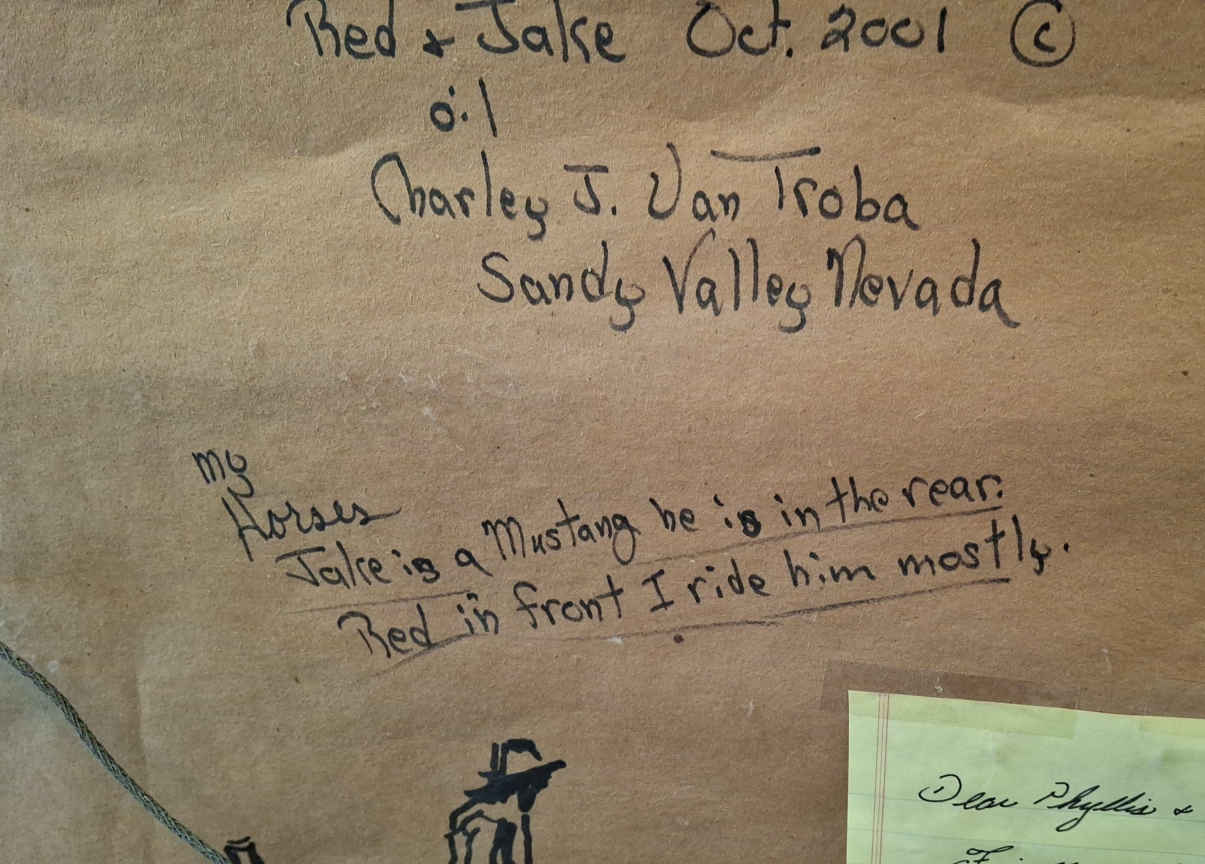 Red & Jake Oct. 2001 ©
oil
Charley J. Van Troba
Sandy Valley Nevada
my
Horses
Jake is a Mustang he is in the rear.
Red in front I ride him mostly.
Dear Phyllis &